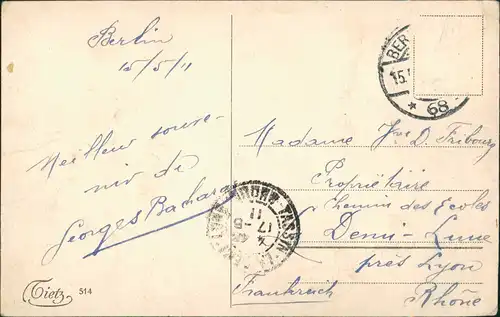 Berlin
15/5/11
Meilleur souve-
nir de
Georges Bachara
Tietz 514
BER
15.
* 68
TASSIN-LA-DEMI-LUNE
17-5
11
Madame Vve D. Fribourg
Propriétaire
Chemin des Ecoles
Demi-Lune
près Lyon
Frankreich Rhône